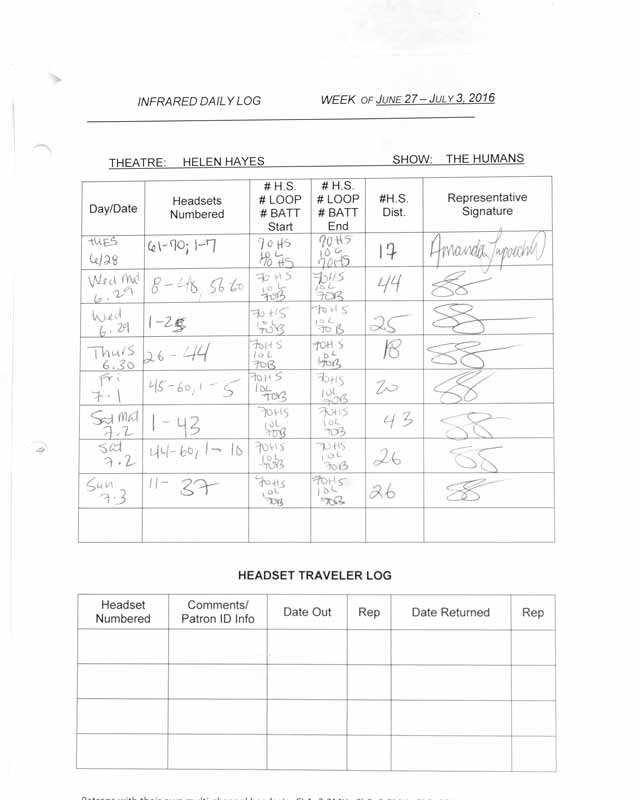 INFRARED DAILY LOG WEEK OF JUNE 27 – JULY 3, 2016
THEATRE: HELEN HAYES SHOW: THE HUMANS
Day/Date Headsets Numbered # H.S. # LOOP # BATT Start # H.S. # LOOP # BATT End #H.S. Dist. Representative Signature
TUES 6/28 61-70; 1-7 70HS 10L 70HS 70HS 10L 70HS 17 Amanda
Wed Mat 6.29 8-48, 56 60 70HS 10L 70B 70HS 10L 70B 44
Wed 6.29 1-25 70HS 10L 70B 70HS 10L 70B 25
Thurs 6.30 26-44 70HS 10L 70B 70HS 10L 70B 18
Fri 7.1 45-60, 1-5 70HS 10L 70B 70HS 10L 70B 20
Sat Mat 7.2 1-43 70HS 10L 70B 70HS 10L 70B 43
Sat 7.2 44-60, 1-10 70HS 10L 70B 70HS 10L 70B 26
Sun 7.3 11-37 70HS 10L 70B 70HS 10L 70B 26
HEADSET TRAVELER LOG
Headset Numbered Comments/ Patron ID Info Date Out Rep Date Returned Rep